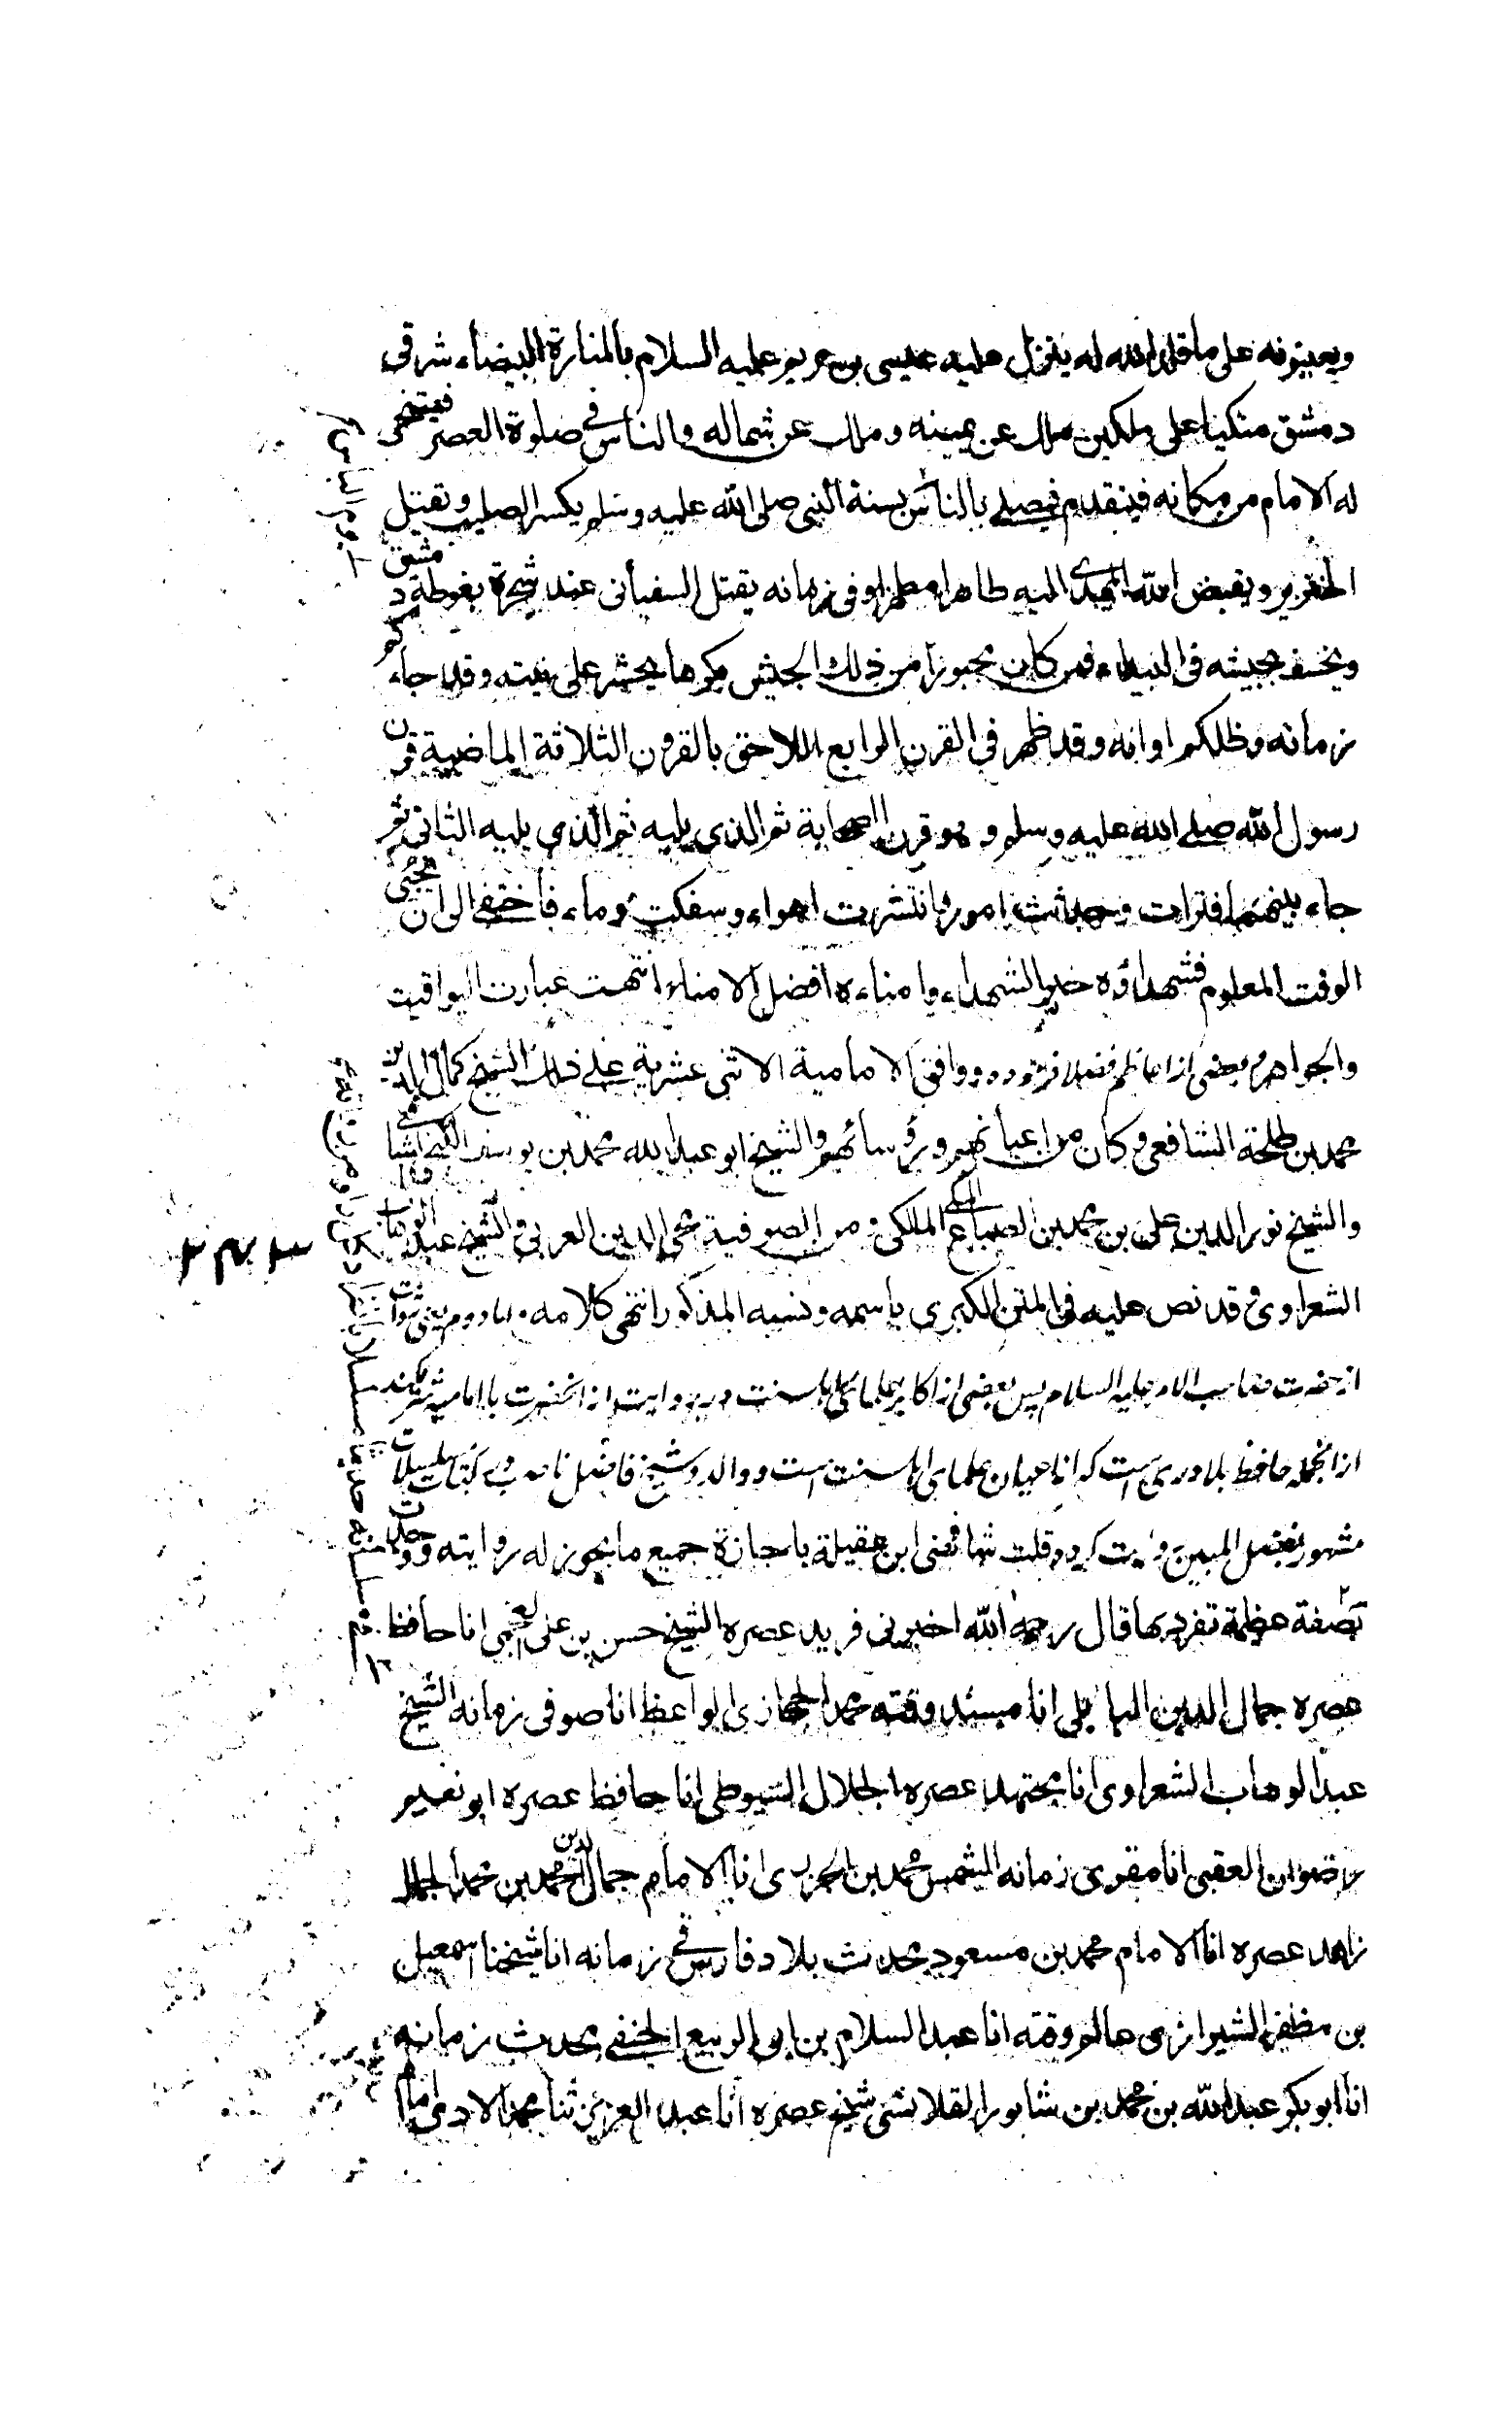 ويعينونه على ما قلده الله له ينزل عليه عيسى بن مريم عليه السلام بالمنارة البيضاء شرقي
دمشق متكيا على ملكين ملك عن يمينه وملك عن شماله والناس في صلوة العصر فيتنحى
له الامام من مكانه فيتقدم فيصلي بالناس بسنة النبي صلى الله عليه وسلم يكسر الصليب ويقتل
الخنزير ويقبض الله المهدي اليه طاهرا مطهرا وفي زمانه يقتل السفياني عند شجرة بغوطة دمشق
ويخسف بجيشه في البيداء فمن كان مجبورا من ذلك الجيش مكرها يحشر على نيته وقد جاءكم
زمانه وظلكم اوانه وقد ظهر في القرن الرابع اللاحق بالقرون الثلاثة الماضية قرن
رسول الله صلى الله عليه وسلم وهو قرن الصحابة ثم الذي يليه ثم الذي يليه الثاني ثم
جاء بينهما فترات وحدثت امور وانتشرت اهواء وسفكت دماء فاختفى الى ان يجئ
الوقت المعلوم فشهداؤه خير الشهداء وامناءه افضل الامناء انتهت عبارت اليواقيت
والجواهر و بعضى از اعاظم فضلا فرموده ووافق الامامية الاثنى عشرية على ذلك الشيخ كمال الدين
محمد بن طلحة الشافعي وكان من اعيانهم ورؤسائهم والشيخ ابو عبد الله محمد بن يوسف الكنجي الشافعي
والشيخ نور الدين علي بن محمد بن الصباغ المكي المالكي ومن الصوفية محي الدين العربي والشيخ عبد الوهاب
الشعراوي وقد نص عليه في المنن الكبرى باسمه ونسبه المذكور انتهى كلامه واما دوم يعنى ثبوت
از حضرت صاحب الامر عليه السلام پس بعضى از اكابر علماى اهل سنت در روايت از انحضرت با اماميه شركت مكنند
ازانجمله حافظ بلاذرى است كه از اعيان علماى اهل سنت است ووالد وشيخ فاضل ناصب در كتاب مسلسلات
مشهور بفضل المبين روايت كرده قلت شافهني ابن عقيلة باجازة جميع ما يجوز له روايته ووجدت
بصفة عظيمة تفرد بها قال رحمه الله اخبرني فريد عصره الشيخ حسن بن علي العجمي انا حافظ
عصره جمال الدين البابلي انا مسند وقته محمد الحجازي الواعظ انا صوفي زمانه الشيخ
عبد الوهاب الشعراوي انا مجتهد عصره الجلال السيوطي انا حافظ عصره ابو نعيم
رضوان العقبي انا مقري زمانه الشمس محمد بن الجزري انا الامام جمال الدين محمد بن محمد الجمال
زاهد عصره انا الامام محمد بن مسعود محدث بلاد فارس في زمانه انا شيخنا اسمعيل
بن مظفر الشيرازي عالم وقته انا عبد السلام بن ابي الربيع الحنفي محدث زمانه
انا ابو بكر عبد الله بن محمد بن شابور القلانسي شيخ عصره انا عبد العزيز ثنا محمد الادمي امام